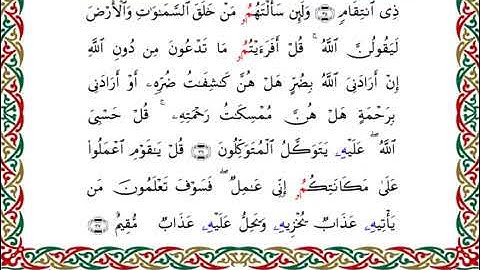 ذِى ٱنتِقَامٍ وَلَئِن سَأَلْتَهُمُۥ مَّنْ خَلَقَ ٱلسَّمَٰوَٰتِ وَٱلْأَرْضَ
لَيَقُولُنَّ ٱللَّهُ ۚ قُلْ أَفَرَءَيْتُمُۥ مَّا تَدْعُونَ مِن دُونِ ٱللَّهِ
إِنْ أَرَادَنِىَ ٱللَّهُ بِضُرٍّ هَلْ هُنَّ كَٰشِفَٰتُ ضُرِّهِۦٓ أَوْ أَرَادَنِى
بِرَحْمَةٍ هَلْ هُنَّ مُمْسِكَٰتُ رَحْمَتِهِۦ ۚ قُلْ حَسْبِىَ
ٱللَّهُ ۖ عَلَيْهِۦ يَتَوَكَّلُ ٱلْمُتَوَكِّلُونَ قُلْ يَٰقَوْمِ ٱعْمَلُوا۟
عَلَىٰ مَكَانَتِكُمُۥٓ إِنِّى عَٰمِلٌ ۖ فَسَوْفَ تَعْلَمُونَ مَن
يَأْتِيهِۦ عَذَابٌ يُخْزِيهِۦ وَيَحِلُّ عَلَيْهِۦ عَذَابٌ مُّقِيمٌ